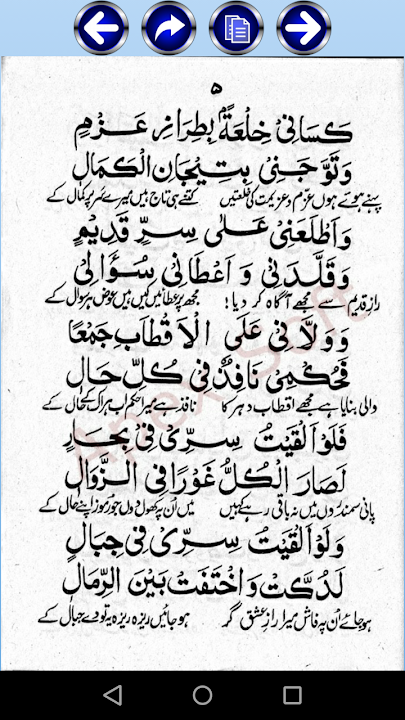 ۵
كَسَانِیْ خِلْعَةً بِطِرَازِ عَزْمٍ
وَتَوَّجَنِیْ بِتِیْجَانِ الْكَمَالِ
پہنے ہوئے ہوں عزم و عزیمت کی خلعتیں کتنے ہی تاج ہیں میرے سر پر کمال کے
وَاَطْلَعَنِیْ عَلٰی سِرٍّ قَدِیْمٍ
وَقَلَّدَنِیْ وَاَعْطَانِیْ سُؤَالِیْ
رازِ قدیم سے مجھے آگاہ کر دیا! مجھ پر عطائیں کیں ہیں عوض ہر سوال کے
وَوَلَّانِیْ عَلَی الْاَقْطَابِ جَمْعًا
فَحُكْمِیْ نَافِذٌ فِیْ كُلِّ حَالِ
والی بنایا ہے مجھے اقطاب دہر کا نافذ ہے میرا حکم اب ہر اک کے حال کے
فَلَوْ اَلْقَیْتُ سِرِّیْ فِیْ بِحَارٍ
لَصَارَ الْكُلُّ غَوْرًا فِی الزَّوَالِ
پانی سمندروں میں نہ باقی رہے کہیں میں ان پہ کھول دوں جو رموز اپنے حال کے
وَلَوْ اَلْقَیْتُ سِرِّیْ فِیْ جِبَالٍ
لَدُكَّتْ وَاخْتَفَتْ بَیْنَ الرِّمَالِ
ہو جائے اُن پہ فاش میرا رازِ عشق گر ہو جائیں ریزہ ریزہ یہ تودے جبال کے